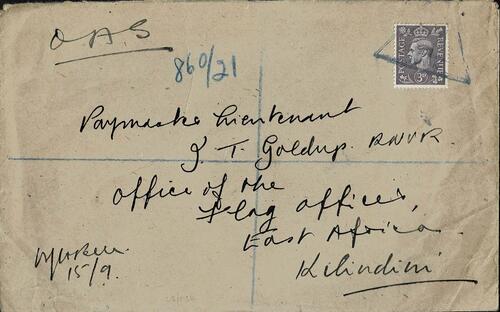 O A S
860/21
POSTAGE REVENUE
3D
Paymaster Lieutenant
J. T. Goldup. RNVR.
Office of the
Flag Officer,
East Africa.
Kilindini
15/9.